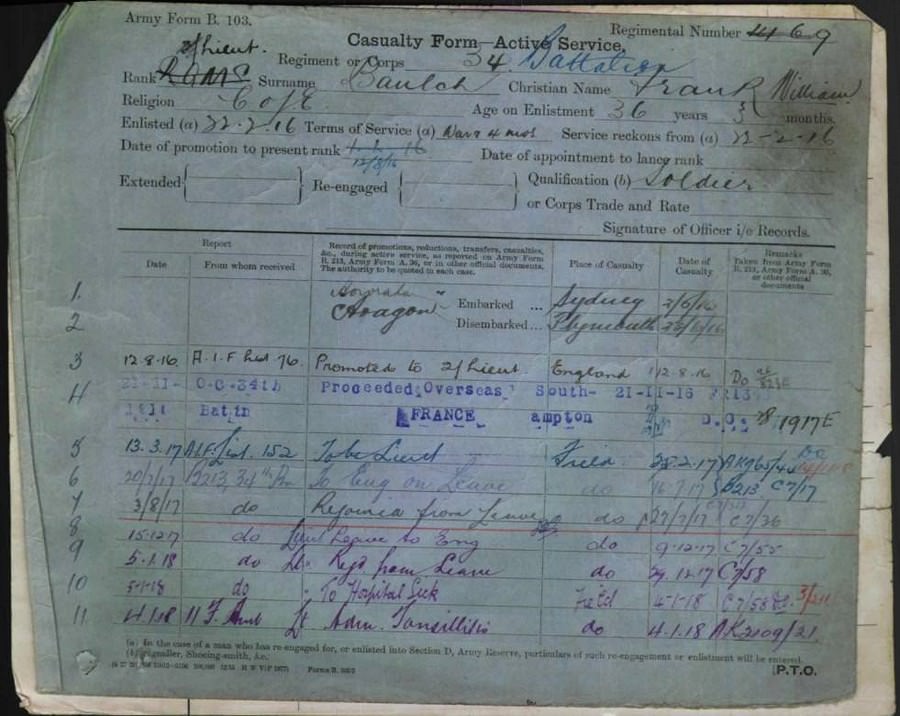 Army Form B. 103.
Regimental Number 4469
Casualty Form—Active Service.
2/Lieut.
Regiment or Corps 34 Battalion
Rank Surname Baulch Christian Name Frank William
Religion C of E Age on Enlistment 36 years 5 months.
Enlisted (a) 22-2-16 Terms of Service (a) War & 4 mos Service reckons from (a) 22-2-16
Date of promotion to present rank Date of appointment to lance rank
12/8/16
Extended Re-engaged Qualification (b) Soldier
or Corps Trade and Rate
Signature of Officer i/c Records.
Report Record of promotions, reductions, transfers, casualties, &c., during active service, as reported on Army Form B. 213, Army Form A. 36, or in other official documents. The authority to be quoted in each case. Place of Casualty Date of Casualty Remarks Taken from Army Form B. 213, Army Form A. 36, or other official documents
Date From whom received
1. Embarked ... Sydney 2/6/16
2 Aragon Disembarked ... Plymouth
3 12.8.16 A.I.F List 76. Promoted to 2/Lieut. England 12.8.16 Do
4 21-11- O.C. 34th Proceeded Overseas South- 21-11-16
1916 Battn FRANCE ampton 1917E
5 13.3.17 AIF List 152 To be Lieut Field
6 20/7/17 B213 34th Bn To Eng on Leave do 16.7.17 B213 C7/17
7 3/8/17 do Rejoined from Leave do 27/7/17 C7/36
8 15.12.17 do Lieut Leave to Eng do 9.12.17 C7/55
9 5.1.18 do Lt. Rejd from Leave do 29.12.17 C7/58
10 5-1-18 do To Hospital Sick Field 4-1-18 C7/58
11 4.1.18 11 F. Amb Lt Adm. Tonsillitis do 4.1.18 AK2109/21.
(a) In the case of a man who has re-engaged for, or enlisted into Section D, Army Reserve, particulars of such re-engagement or enlistment will be entered.
(b) Signaller, Shoeing-smith, &c.
P.T.O.